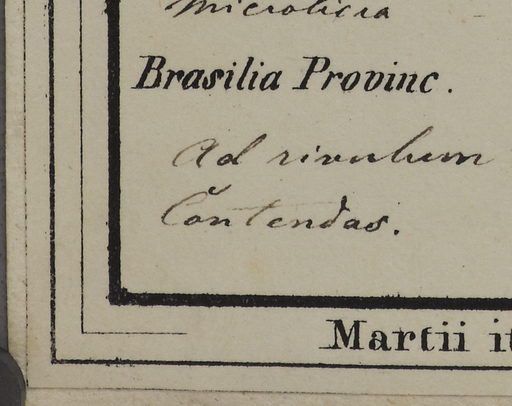 Microlicia
Brasilia Provinc.
Ad rivulum
Contendas.
Martii it